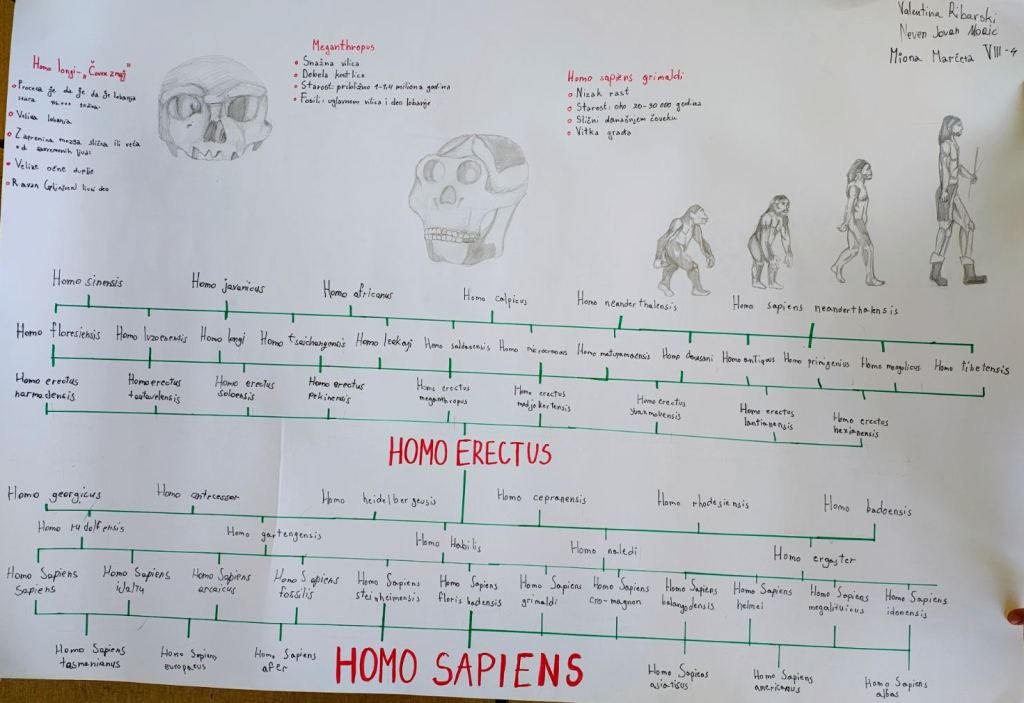 Valentina Ribarski
Neven Jovan Moric
Miona Marčeta VIII-4
Homo longi-„Čovek zmaj"
• Procena je da je da je lobanja
stara
• Velika lobanja
• Zapremina mozga slična ili veća
od savremenih ljudi
• Velike očne duplje
• Ravan lični deo
Meganthropus
• Snažna vilica
• Debele koštice
• Starost: približno 1-1,4 miliona godina
• Fosili: uglavnom vilica i deo lobanje
Homo sapiens grimaldi
• Nizak rast
• Starost: oko 20-30 000 godina
• Slični današnjem čoveku
• Vitka građa
Homo sinensis Homo javanicus Homo africanus Homo calpicus Homo neanderthalensis Homo sapiens neanderthalensis
Homo floresiensis Homo luzonensis Homo longi Homo tsaichangensis Homo leakeyi Homo saldanensis Homo microcranous Homo Homo Homo antiquus Homo primigenius Homo mogolicus Homo tibetensis
Homo erectus
narmadensis
Homo erectus
tautavelensis
Homo erectus
soloensis
Homo erectus
pekinensis
Homo erectus
meganthropus
Homo erectus
modjokertensis
Homo erectus
yuanmouensis
Homo erectus
lantianensis
Homo erectus
hexianensis
HOMO ERECTUS
Homo georgicus Homo antecessor Homo heidelbergeusis Homo cepranensis Homo rhodesiensis Homo badoensis
Homo rudolfensis Homo gautengensis Homo Habilis Homo naledi Homo ergaster
Homo Sapiens
Sapiens
Homo Sapiens
idaltu
Homo Sapiens
arcaicus
Homo Sapiens
fossilis
Homo Sapiens
steinheimensis
Homo Sapiens
floris badensis
Homo Sapiens
grimaldi
Homo Sapiens
cro-magnon
Homo Sapiens
balangodensis
Homo Sapiens
helmei
Homo Sapiens
Homo Sapiens
idonensis
Homo Sapiens
tasmanianus
Homo Sapiens
europaeus
Homo Sapiens
afer
HOMO SAPIENS
Homo Sapiens
asiatisus
Homo Sapiens
americanus
Homo Sapiens
albas